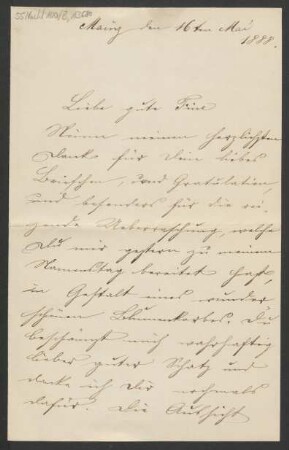 Mainz den 16ten Mai
1888.
Liebe gute Fine
Nimm meinen herzlichsten
Dank für Dein liebes
Briefchen, und Gratulation,
und besonders für die rei-
zende Ueberraschung, welche
Du mir gestern zu meinem
Namenstag bereitet hast,
in Gestalt eines wunder
schönen Blumenkorbes. Du
beschämst mich wahrhaftig
lieber guter Schatz und
danke ich Dir nochmals
dafür. Die Aussicht